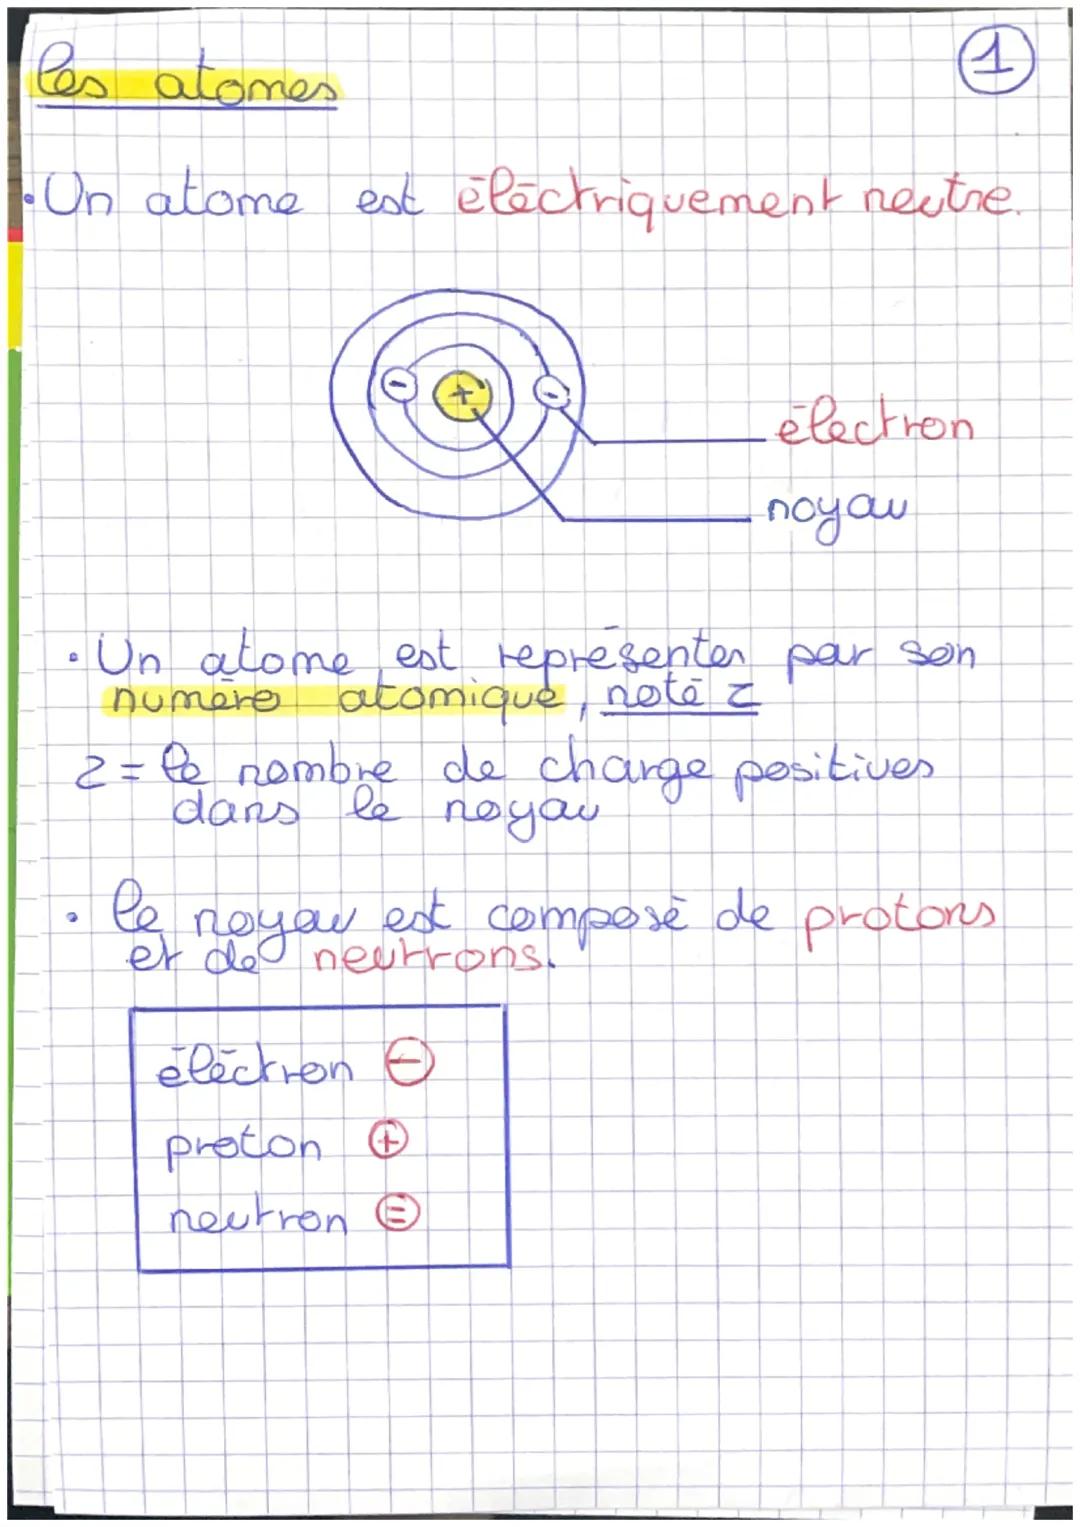 les atomes
1
• Un atome est éléctriquement neutre.
-
+
-
électron
noyau
• Un atome est représenter par son
numéro atomique, noté Z
Z = le nombre de charge positives
dans le noyau
• le noyau est composé de protons
et de neutrons.
éléctron ⊖
proton ⊕
neutron ⊜